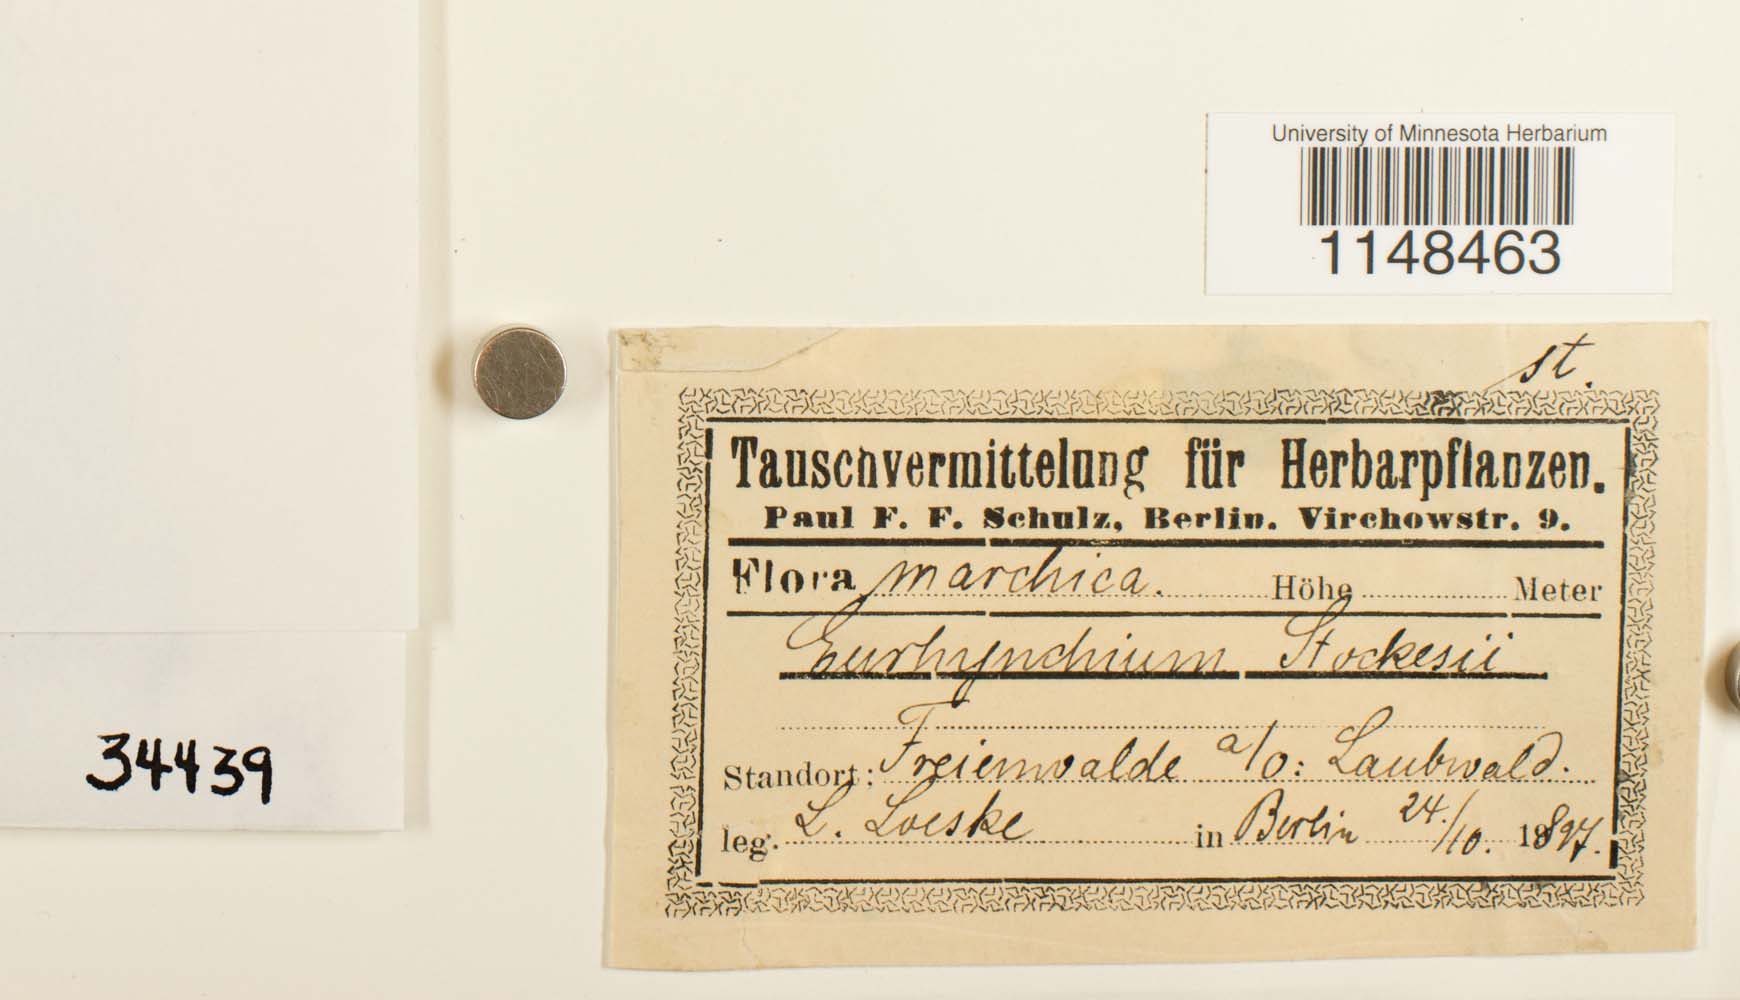 University of Minnesota Herbarium
1148463
st.
Tauschvermittelung für Herbarpflanzen.
Paul F. F. Schulz, Berlin. Virchowstr. 9.
Flora marchica. Höhe Meter
Eurhynchium Stockesii
Standort: Freienwalde a/o: Laubwald.
leg. L. Loeske in Berlin 24./10. 1897.
34439